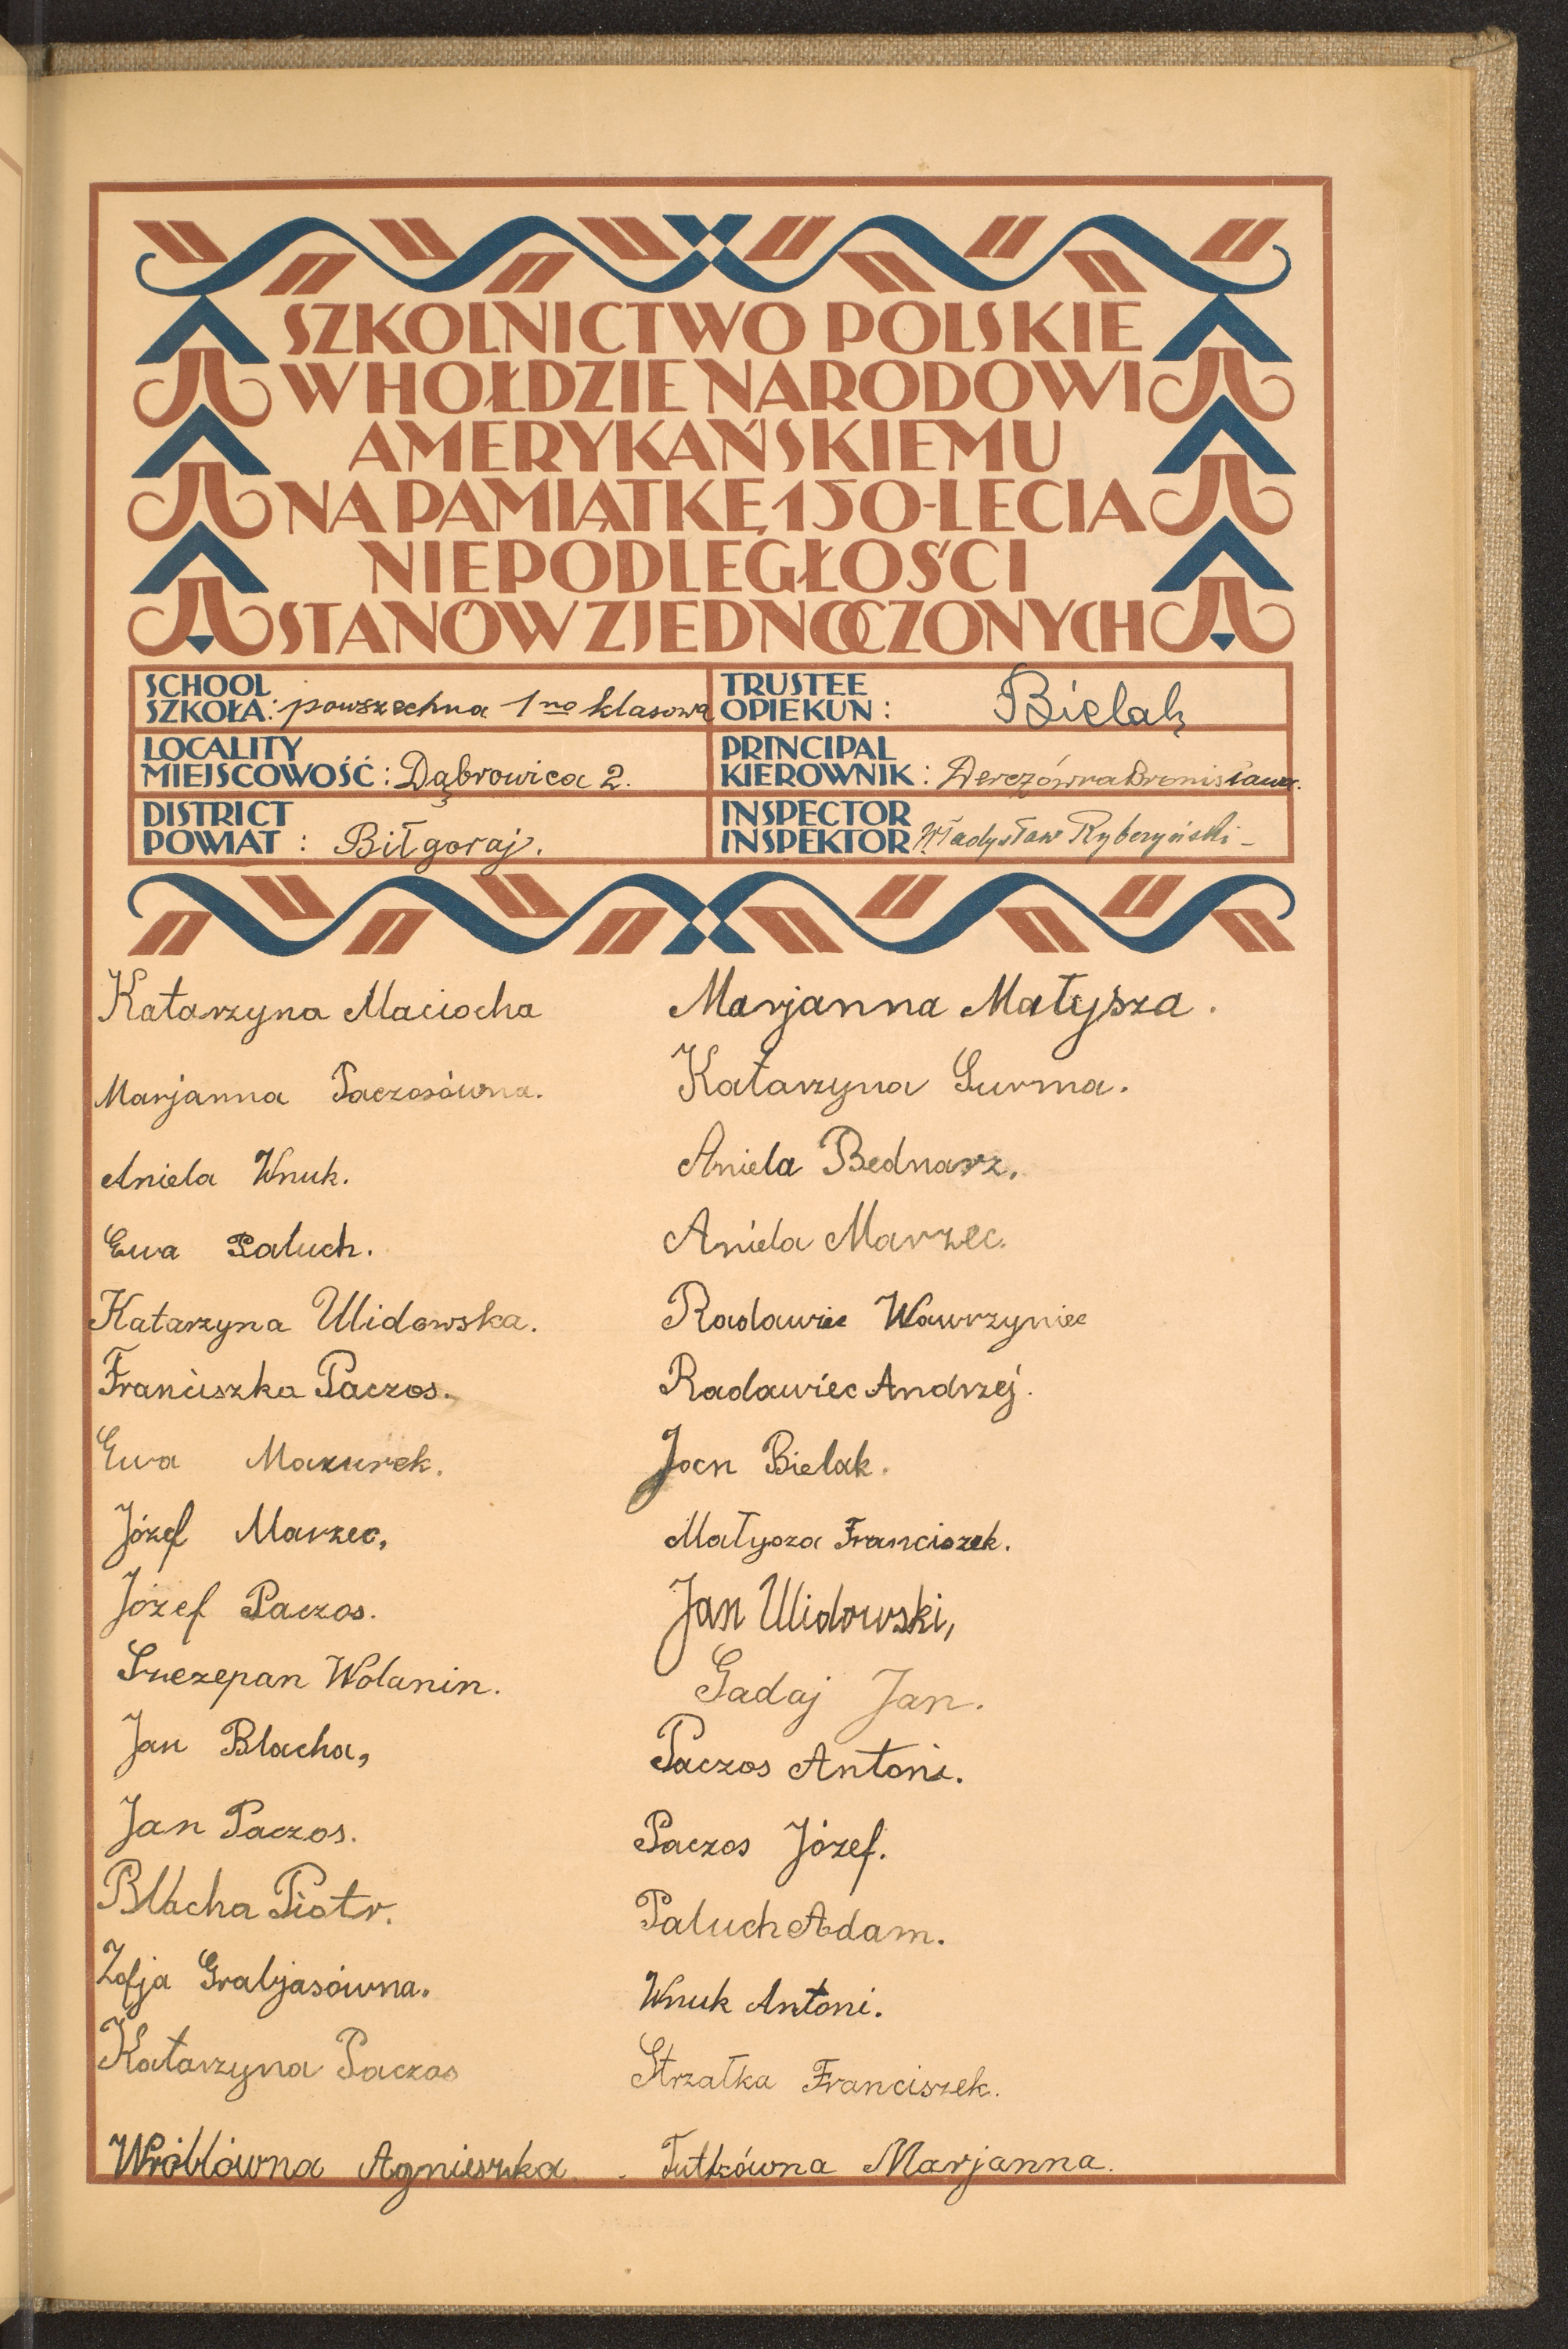 SZKOLNICTWO POLSKIE
W HOŁDZIE NARODOWI
AMERYKAŃSKIEMU
NA PAMIĄTKĘ 150-LECIA
NIEPODLEGŁOŚCI
STANÓW ZJEDNOCZONYCH
SCHOOL
SZKOŁA: powszechna 1no klasowa
TRUSTEE
OPIEKUN: Bielak
LOCALITY
MIEJSCOWOŚĆ: Dąbrowica 2.
PRINCIPAL
KIEROWNIK: Derezówna Bronisława.
DISTRICT
POWIAT: Biłgoraj.
INSPECTOR
INSPEKTOR Władysław Ryberyński
Katarzyna Maciocha
Marjanna Paczosówna.
Aniela Wnuk.
Ewa Paluch.
Katarzyna Ulidowska.
Franciszka Paczos.
Ewa Mazurek.
Józef Marzec,
Józef Paczos.
Szczepan Wolanin.
Jan Blacha,
Jan Paczos.
Blacha Piotr.
Zofja Grabjasówna.
Katarzyna Paczos
Wróblówna Agnieszka.
Marjanna Małysza.
Katarzyna Surma.
Aniela Bednarz.
Aniela Marzec.
Radawiec Wawrzyniec
Radawiec Andrzej.
Jan Bielak.
Małysza Franciszek.
Jan Ulidowski,
Gadaj Jan.
Paczos Antoni.
Paczos Józef.
Paluch Adam.
Wnuk Antoni.
Strzałka Franciszek.
Tutkówna Marjanna.